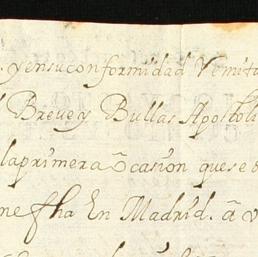 . yensuconformidad Vemita
l Breve y Bullas Apostoli
laprimera õcasion que se o
ne fha En Madrid. â v